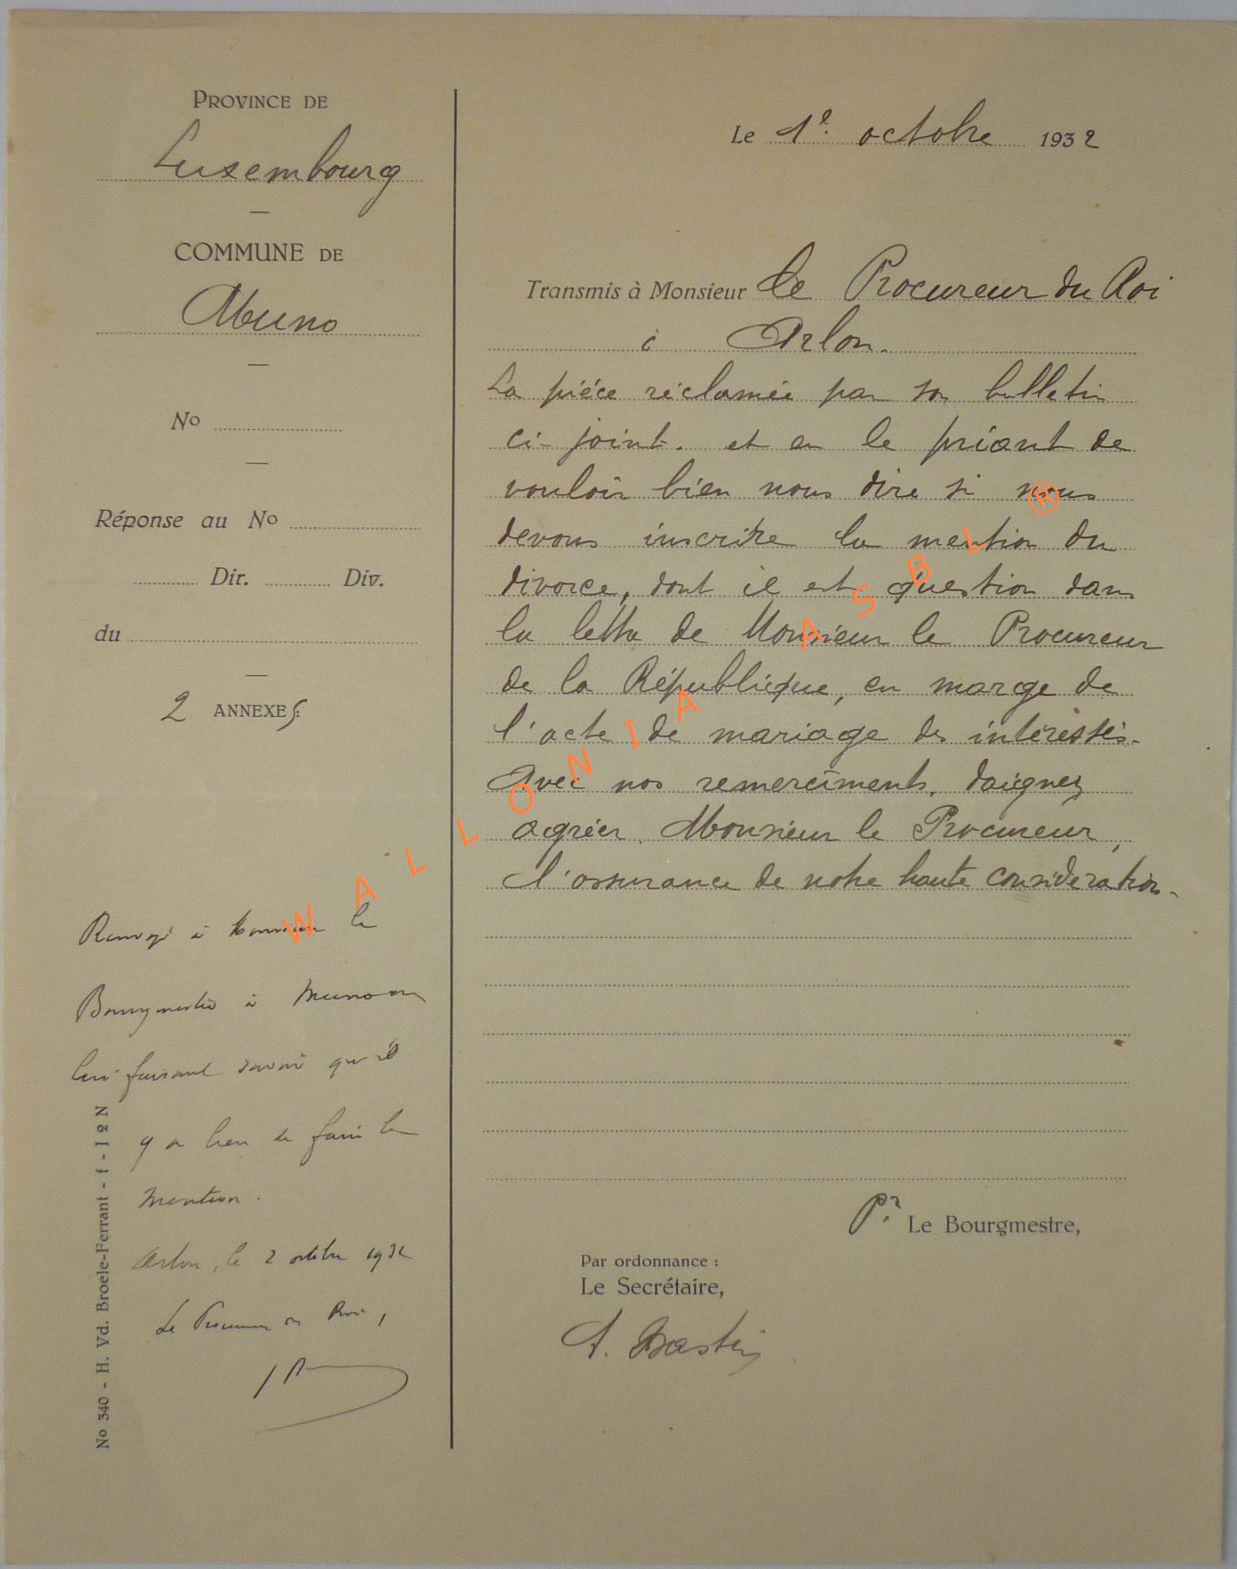 PROVINCE DE
Luxembourg
COMMUNE DE
Muno
No
Réponse au No
Dir. Div.
du
2 ANNEXES
Le 1e octobre 1932
Transmis à Monsieur le Procureur du Roi
à Arlon.
La pièce réclamée par son bulletin
ci-joint. et en le priant de
vouloir bien nous dire si nous
devons inscrire la mention du
divorce, dont il est question dans
la lettre de Monsieur le Procureur
de la République, en marge de
l'acte de mariage des intéressés.
Avec nos remerciments, daignez
agréer, Monsieur le Procureur,
l'assurance de notre haute considération.
Pr Le Bourgmestre,
Par ordonnance :
Le Secrétaire,
A. Bastin
Renvoyé à Monsieur le
Bourgmestre à Muno en
lui faisant savoir qu'il
y a lieu de faire la
mention.
Arlon, le 2 octobre 1932
Le Procureur du Roi,
No 340 - H. Vd. Broele-Ferrant - f - l 2 N
WALLONIA ASBL ®